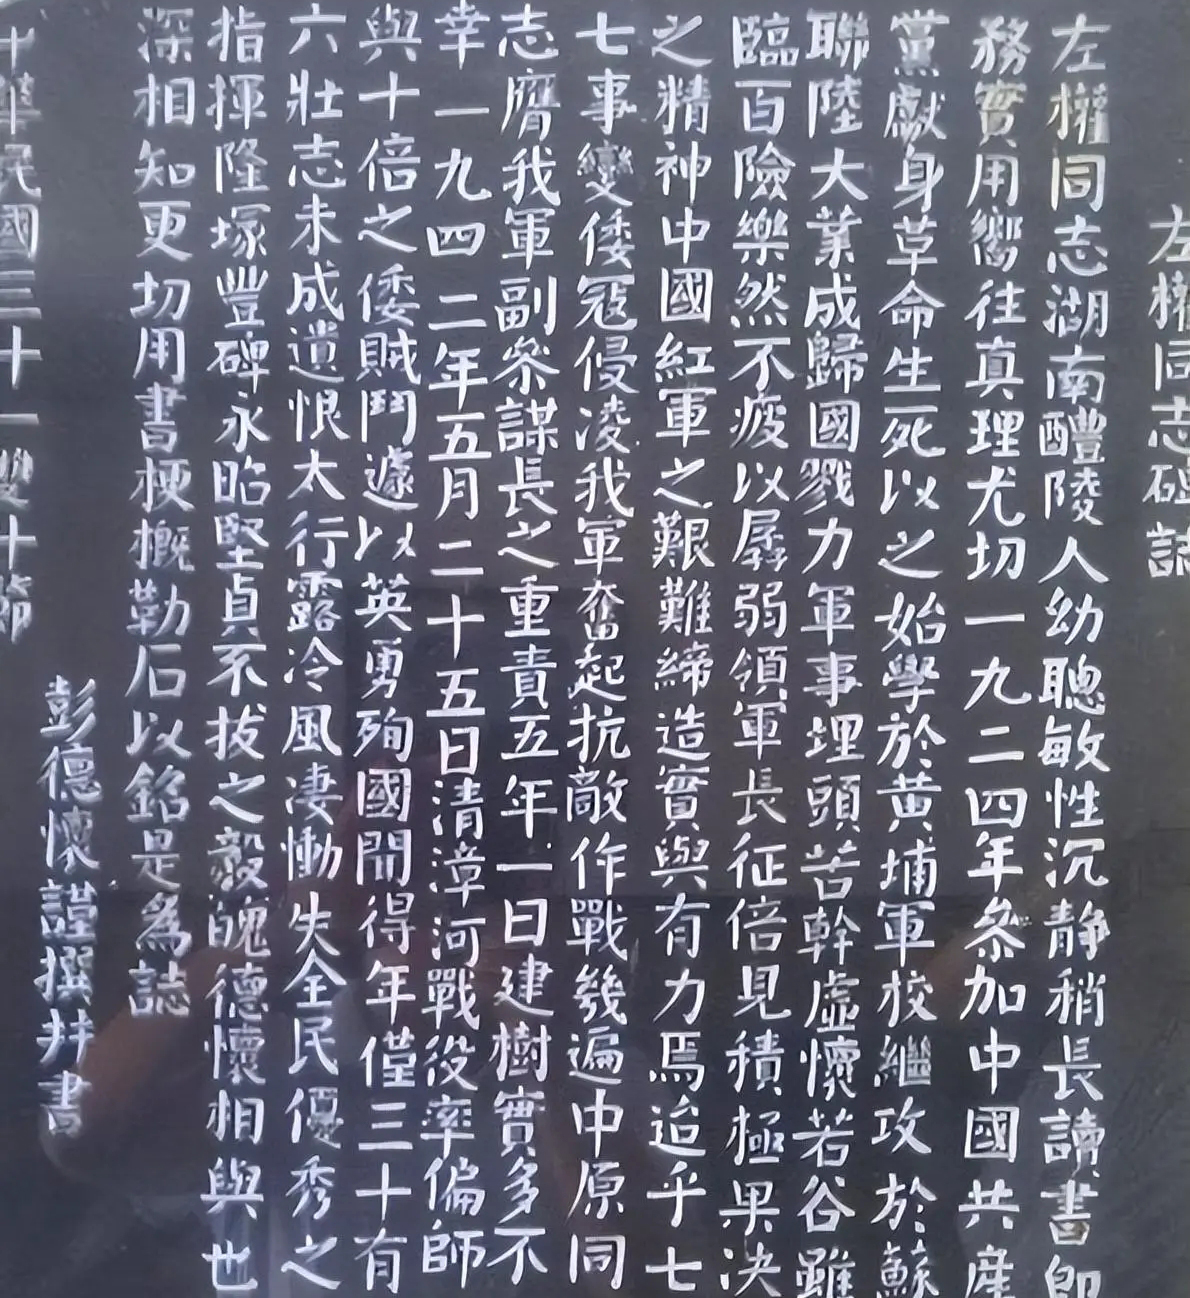 左權同志碑誌
左權同志湖南醴陵人幼聰敏性沉静稍長讀書即
務實用嚮往真理尤切一九二四年參加中國共産
黨獻身革命生死以之始學於黄埔軍校繼攻於蘇
聯陸大業成歸國戮力軍事埋頭苦幹虛懷若谷雖
臨百險樂然不疲以孱弱領軍長征倍見積極果決
之精神中國紅軍之艱難締造實與有力焉迨乎七
七事變倭寇侵凌我軍奮起抗敵作戰幾遍中原同
志膺我軍副參謀長之重責五年一日建樹實多不
幸一九四二年五月二十五日清漳河戰役率偏師
與十倍之倭賊鬥遽以英勇殉國聞得年僅三十有
六壯志未成遺恨太行露冷風凄慟失全民優秀之
指揮隆塚豐碑永昭堅貞不拔之毅魄德懷相與也
深相知更切用書梗概勒石以銘是為誌
中華民國三十一雙十節
彭德懷謹撰并書